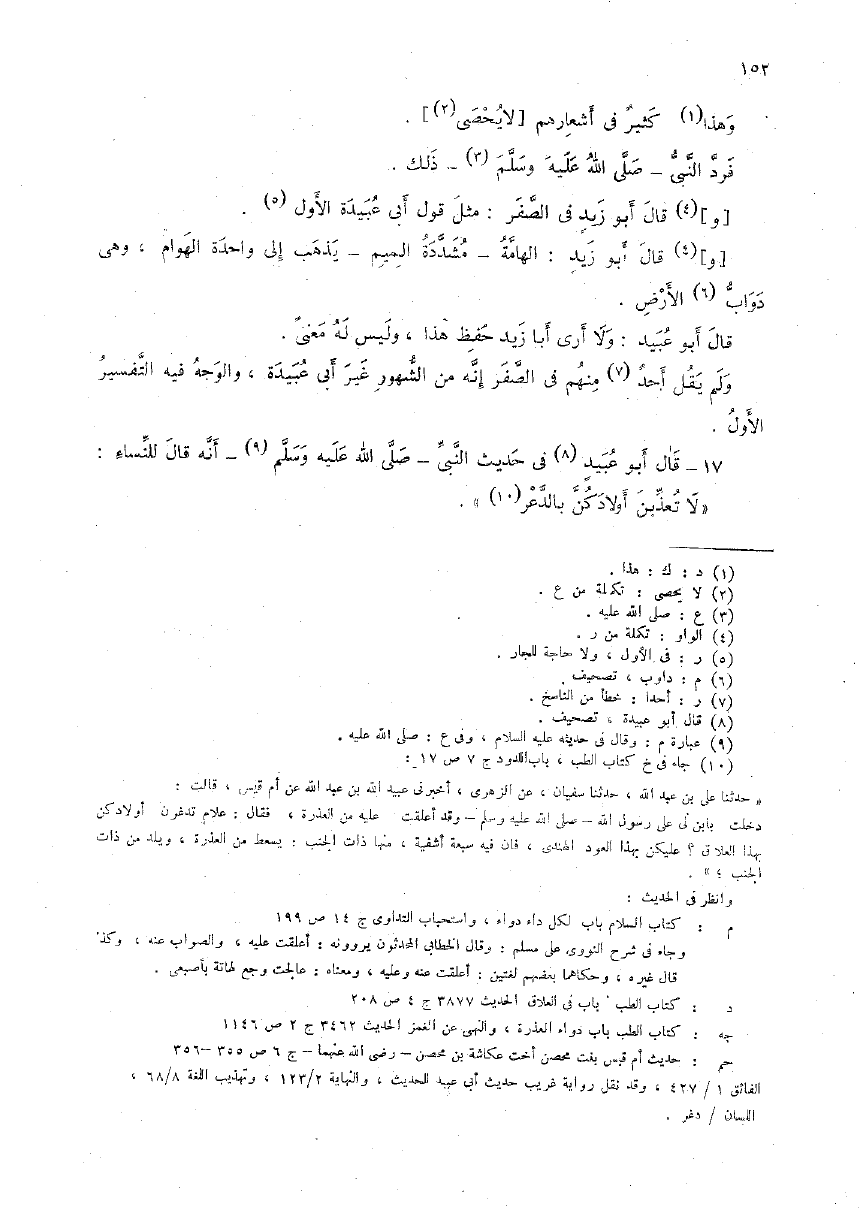 ١٥٢
وَهذا(١) كَثيرٌ فى أَشعارِهم [لا يُحْصَى(٢)] .
فَردَّ النَّبىُّ – صَلَّى اللهُ عَلَيهَ وسَلَّمَ (٣) – ذَلك .
[و](٤) قالَ أَبو زَيدٍ فى الصَّفَر : مثلَ قول أَبى عُبَيدَة الأَول (٥) .
[و](٤) قالَ أَبو زَيدٍ : الهامَّةُ – مُشَدَّدَةُ الميم – يَذهَب إلى واحدَة الهَوام ، وهى
دَوَابُّ (٦) الأَرْضِ .
قالَ أَبو عُبَيد : وَلَا أرى أَبا زَيد حَفِظ هٰذا ، ولَيس لَهُ مَعْنىً .
وَلَم يَقُل أَحدٌ (٧) مِنهُم فى الصَّفَر إنَّه من الشُّهورِ غَيرَ أَبى عُبَيدَة ، والوَجهُ فيه التَّفسيرُ
الأَولُ .
١٧ – قَال أَبو عُبَيدٍ (٨) فى حَديث النَّبىِّ – صَلَّى الله عَلَيه وَسَلَّم (٩) – أَنَّه قالَ للنِّساءِ :
«لَا تُعذِّبنَ أَولادَكُنَّ بالدَّغْر(١٠) » .
(١) د : ك : هذا .
(٢) لا يحصى : تكملة من ع .
(٣) ع : صلى الله عليه .
(٤) الواو : تكملة من ر .
(٥) ر : فى الأول ، ولا حاجة للجار .
(٦) م : داوب ، تصحيف .
(٧) ر : أحدا : خطأ من الناسخ .
(٨) قال أبو عبيدة ، تصحيف .
(٩) عبارة م : وقال فى حديثه عليه السلام ، وفى ع : صلى الله عليه .
(١٠) جاء فى خ كتاب الطب ، باب اللدود ج ٧ ص ١٧ :
« حدثنا على بن عبد الله ، حدثنا سفيان ، عن الزهرى ، أخبرنى عبيد الله بن عبد الله عن أم قيس ، قالت :
دخلت بابن لى على رسول الله – صلى الله عليه وسلم – وقد أعلقت عليه من العذرة ، فقال : علام تدغرن أولادكن
بهذا العلاق ؟ عليكن بهذا العود الهندى ، فان فيه سبعة أشفية ، منها ذات الجنب : يسعط من العذرة ، ويلد من ذات
الجنب ؛ » .
وانظر فى الحديث :
م : كتاب السلام باب لكل داء دواء ، واستحباب التداوى ج ١٤ ص ١٩٩
وجاء فى شرح النووى على مسلم : وقال الخطابى المحدثون يروونه : أعلقت عليه ، والصواب عنه ، وكذا
قال غيره ، وحكاهما بعضهم لغتين : أعلقت عنه وعليه ، ومعناه : عالجت وجع لهاته بأصبعى .
د : كتاب الطب باب فى العلاق الحديث ٣٨٧٧ ج ٤ ص ٢٠٨
جه : كتاب الطب باب دواء العذرة ، والنهى عن الغمز الحديث ٣٤٦٢ ج ٢ ص ١١٤٦
حم : حديث أم قيس بنت محصن أخت عكاشة بن محصن – رضى الله عنهما – ج ٦ ص ٣٥٥ – ٣٥٦
الفائق ١ / ٤٢٧ ، وقد نقل رواية غريب حديث أبى عبيد للحديث ، والنهاية ١٢٣/٢ ، وتهذيب اللغة ٦٨/٨ ،
اللسان / دغر .